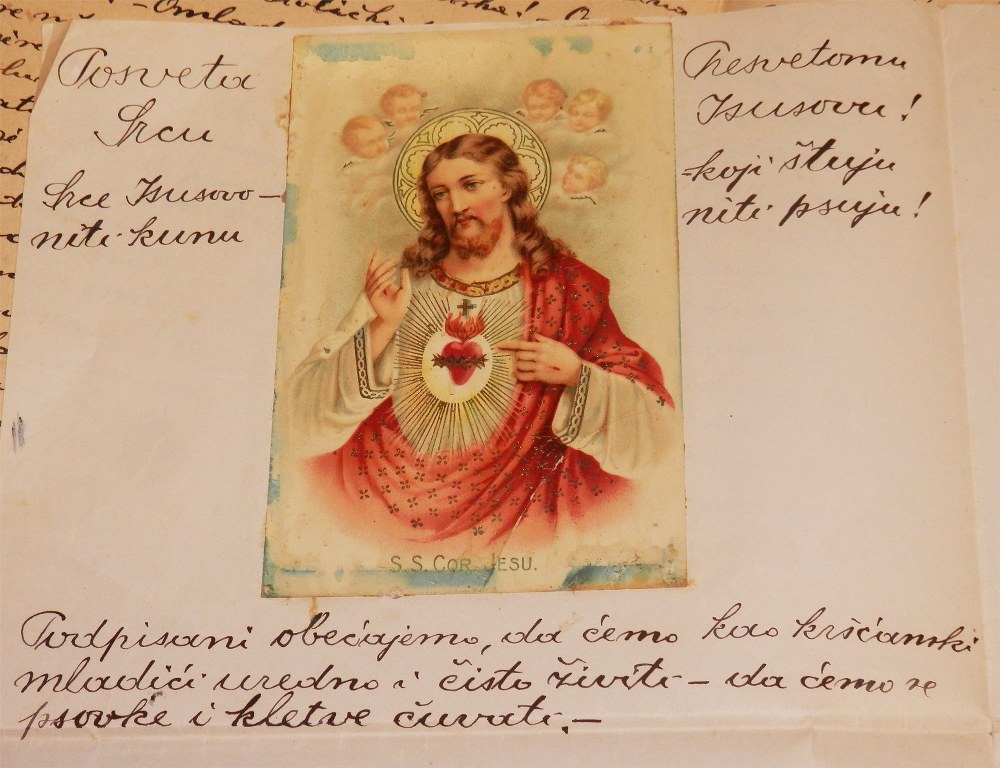 Posveta Presvetomu
Srcu Isusovu!
Srce Isusovo – koji štuju
niti kunu niti psuju!
S. S. COR JESU.
Podpisani obećajemo, da ćemo kao kršćanski
mladići uredno i čisto živiti – da ćemo se
psovke i kletve čuvati. –